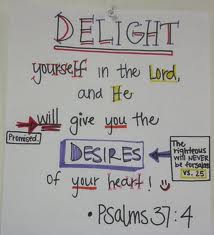 DELIGHT
yourself in the Lord,
and He
will give you the
Promised
DESIRES
The righteous will NEVER be forsaken vs. 25
of your heart!
• Psalms 37:4